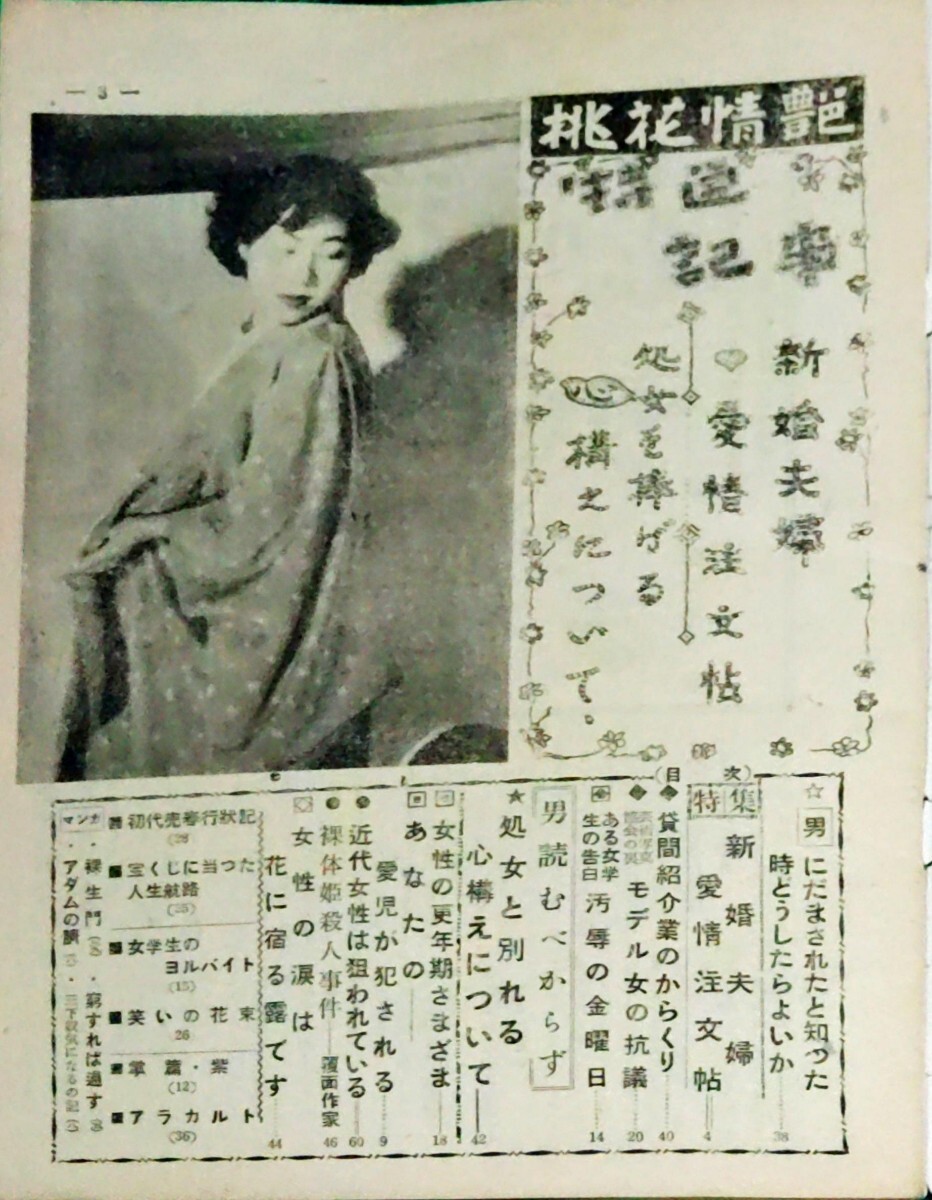 — 3 —
桃花情艶
事記
新婚夫婦
♡愛情注文帖
処女を捧げる
心構えについて。
目次
☆男にだまされたと知った
時どうしたらよいか 38
特集
新婚夫婦
愛情注文帖 4
貸間紹介業のからくり 40
モデル女の抗議 20
ある女学
生の告白
汚辱の金曜日 14
男読むべからず
★処女と別れる
心構えについて 42
女性の更年期さまざま 18
あなたの
愛児が犯される 9
近代女性は狙われている 60
裸体姫殺人事件 覆面作家 46
女性の涙は
花に宿る露です 44
初代売春行状記
宝くじに当った
人生航路
(25)
女学生の
ヨルバイト
(15)
笑いの花束
26
掌篇・紫
(12)
アラカルト
(36)
マンガ
・裸生門
・窮すれば通ず
・アダムの